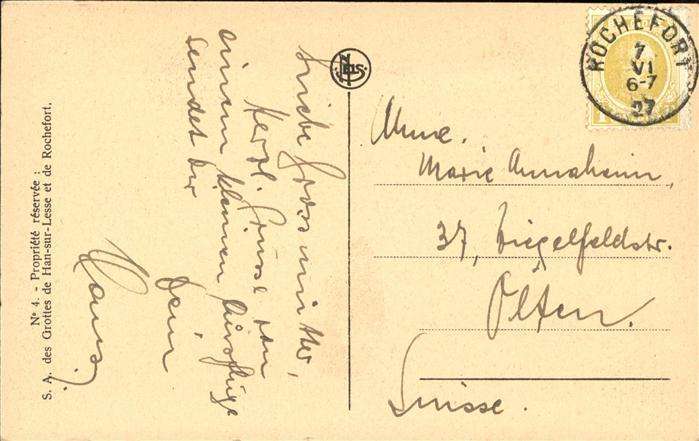 Nº 4. - Propriété réservée :
S. A. des Grottes de Han-sur-Lesse et de Rochefort.
Liebe Grossmutter,
Herzl. Grüsse von
einem kleinen Ausfluge
sendet Dir
Dein
Hans.
NELS
ROCHEFORT
7
VI
6-7
27
Mme.
Marie Annaheim,
37, Ziegelfeldstr.
Olten.
Suisse.